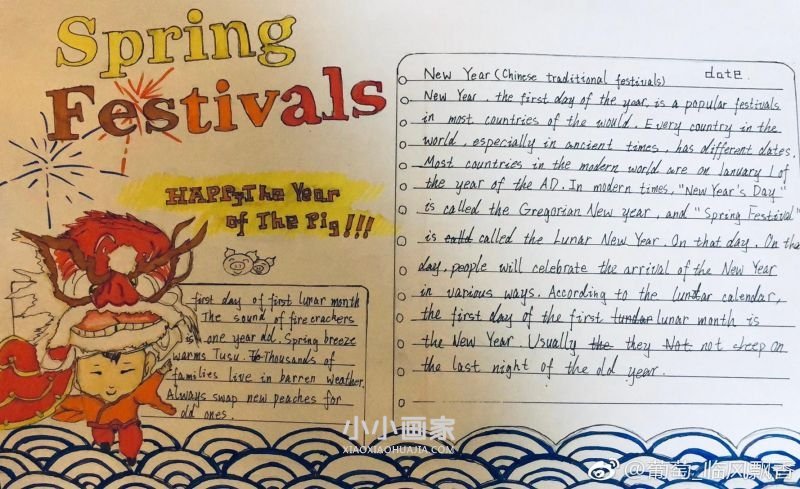 Spring
Festivals
HAPPy The Year
of The Pig!!!
first day of first lunar month
The sound of firecrackers
is one year old. Spring breeze
warms Tusu. Thousands of
families live in barren weather.
Always swap new peaches for
old ones.
New Year (Chinese traditional festivals) date.
New Year, the first day of the year, is a popular festivals
in most countries of the would. Every country in the
world, especially in ancient times, has different dates.
Most countries in the modern world are on January 1 of
the year of the AD. In modern times, "New Year's Day"
is called the Gregorian New year, and "Spring Festival"
is called called the Lunar New Year. On that day, On the
day, people will celebrate the arrival of the New Year
in various ways. According to the lunar calendar,
the first day of the first lunar month is
the New Year. Usually the they Not not sleep on
the last night of the old year.
小小画家
XIAOXIAOHUAJIA.COM
@葡萄_临风飘香